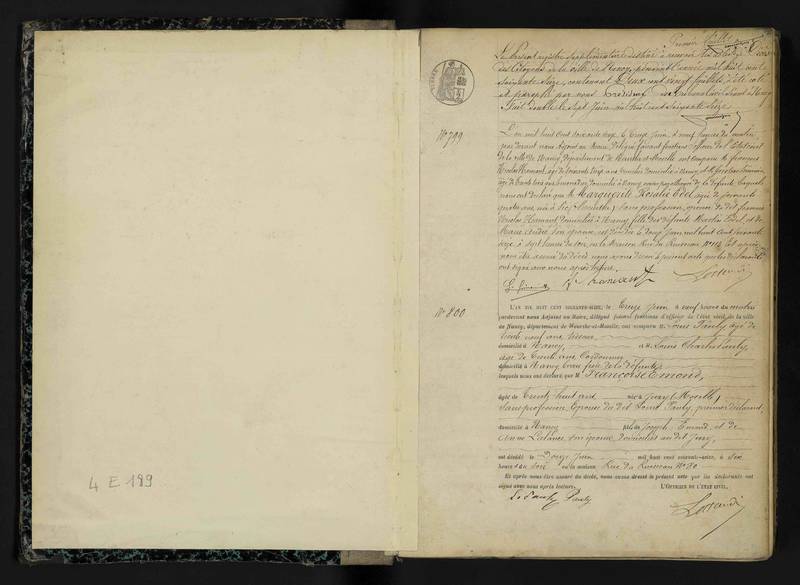 4 E 199
Premier feuillet
Le présent registre supplémentaire destiné à recevoir les
des Citoyens de la ville de Nancy, pendant l'année mil huit cent
soixante seize, contenant Deux cent vingt feuillets, a été coté
et paraphé par nous
Nancy
Fait double le sept Juin mil huit cent soixante seize
N° 799
L'an mil huit cent soixante seize, le treize Juin, à neuf heures du matin
par devant nous Adjoint au Maire, délégué faisant fonctions d'officier de l'état civil
de la ville de Nancy, Département de Meurthe-et-Moselle, ont comparu M. François
Nicolas Hannant, âgé de soixante domicilié à Nancy, et M.
âgé de trente trois ans, domicilié à Nancy de la défunte, lesquels
nous ont déclaré que M. Marguerite Rosalie Edel, âgée de soixante
quatre ans, née à sans profession, épouse du dit François
Nicolas Hannant, domiciliée à Nancy, fille des défunts Martin Edel, et de
Marie André, son épouse, est décédée le douze Juin mil huit cent soixante
seize, à sept heures du soir, en la maison Rue du Ruisseau N° Et après
nous être assuré du décès, nous avons dressé le présent acte que les déclarants
ont signé avec nous après lecture.
N° 800
L'AN MIL HUIT CENT SOIXANTE-SEIZE, le treize Juin à neuf heures du matin
pardevant nous Adjoint au Maire, délégué faisant fonctions d'officier de l'état civil de la ville
de Nancy, département de Meurthe-et-Moselle, ont comparu M. Louis Pauly, âgé de
trente neuf ans,
domicilié à Nancy, et M. Louis Charles Pauly,
âgé de trente ans, Cordonnier
domicilié à Nancy, beau frère de la défunte,
lesquels nous ont déclaré que M Françoise Emond,
âgée de trente huit ans née à Jury (Moselle)
sans profession, épouse du dit Louis Pauly, premier déclarant,
domiciliée à Nancy fille de Joseph Emond, et de
Anne Lalance, son épouse, domiciliés au dit Jury,
est décédée le Douze Juin mil huit cent soixante-seize, à six
heures du soir en la maison Rue du Ruisseau N° 80
Et après nous être assuré du décès, nous avons dressé le présent acte que les déclarants ont
signé avec nous après lecture. L'OFFICIER DE L'ÉTAT CIVIL,
L. Pauly Pauly